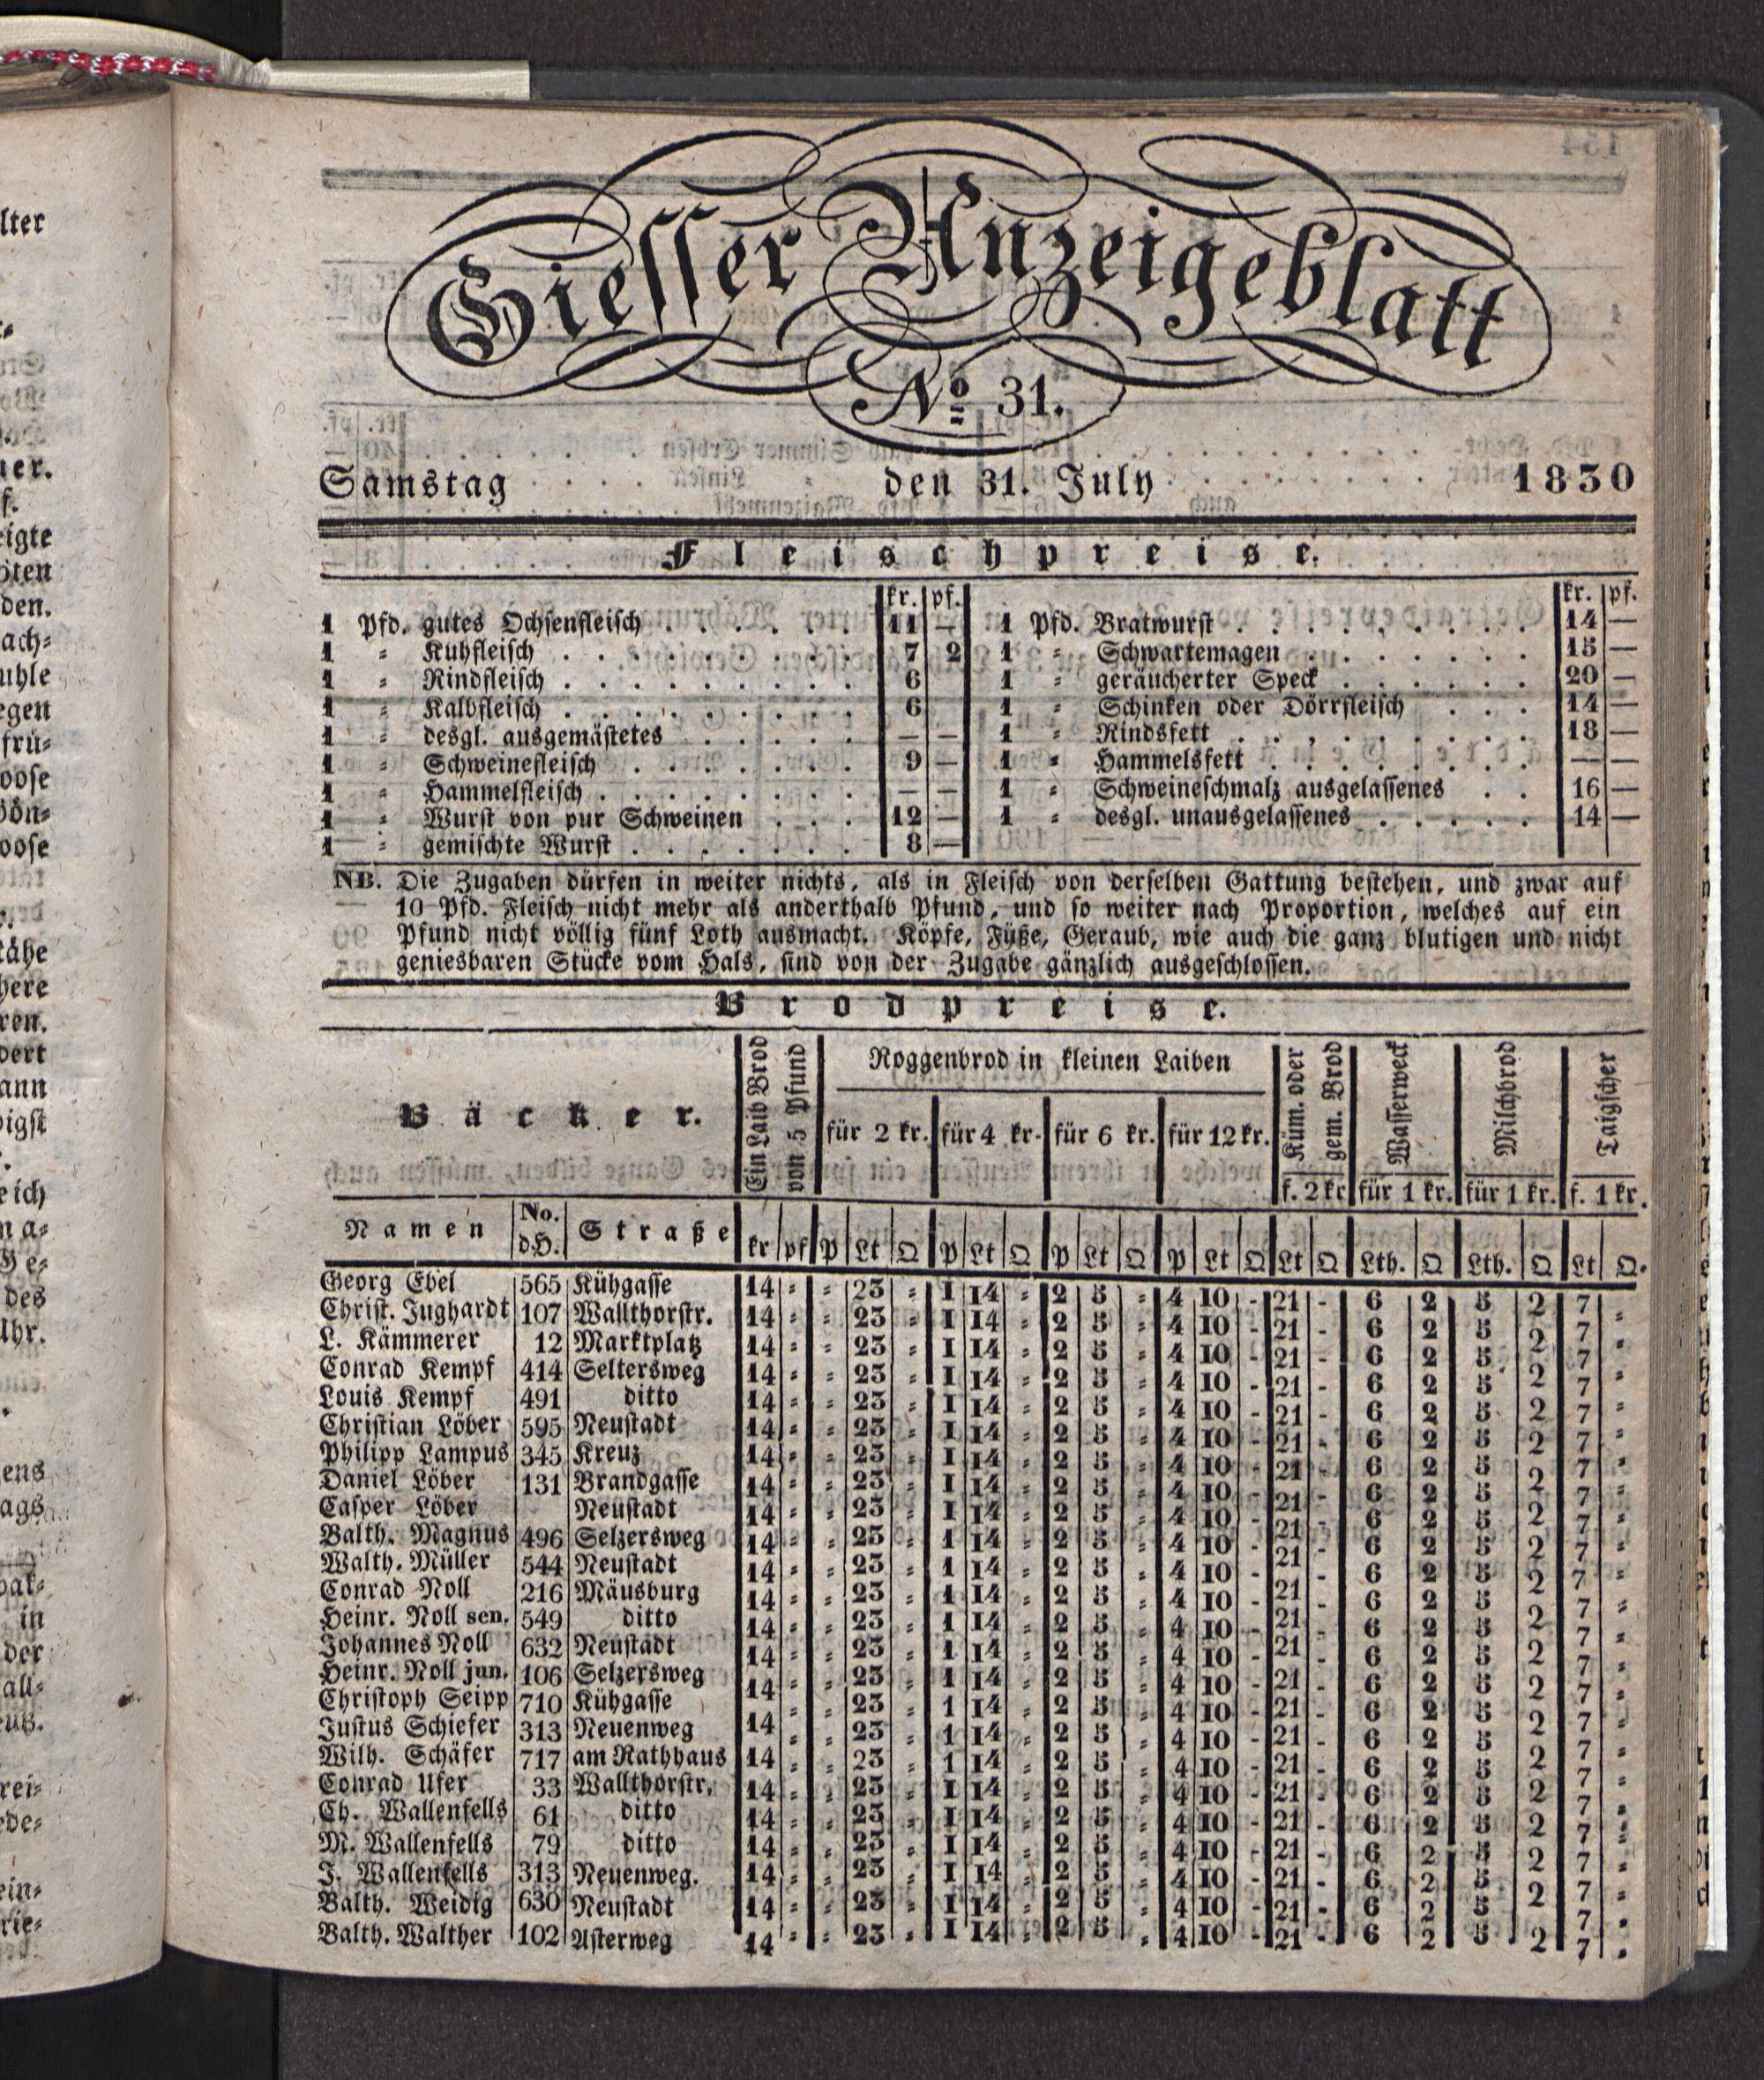 Giesser Anzeigeblatt
No 31.
Samstag den 31. July 1830
Fleischpreise.
kr. pf. kr. pf.
1 Pfd. gutes Ochsenfleisch . . . . . . 11 — 1 Pfd. Bratwurst . . . . . . . . . 14 —
1 " Kuhfleisch . . . . . . . . . 7 2 1 " Schwartemagen . . . . . . . 15 —
1 " Rindfleisch . . . . . . . . . 6 1 " geräucherter Speck . . . . . . 20 —
1 " Kalbfleisch . . . . . . . . . 6 1 " Schinken oder Dörrfleisch . . . 14 —
1 " desgl. ausgemästetes . . . . . — — 1 " Rindsfett . . . . . . . . . 18 —
1 " Schweinefleisch . . . . . . . 9 — 1 " Hammelsfett . . . . . . . . — —
1 " Hammelfleisch . . . . . . . . — — 1 " Schweineschmalz ausgelassenes . . 16 —
1 " Wurst von pur Schweinen . . . 12 — 1 " desgl. unausgelassenes . . . . . 14 —
1 " gemischte Wurst . . . . . . . 8 —
NB. Die Zugaben dürfen in weiter nichts, als in Fleisch von derselben Gattung bestehen, und zwar auf
10 Pfd. Fleisch nicht mehr als anderthalb Pfund, und so weiter nach Proportion, welches auf ein
Pfund nicht völlig fünf Loth ausmacht. Köpfe, Füße, Geraub, wie auch die ganz blutigen und nicht
geniesbaren Stücke vom Hals, sind von der Zugabe gänzlich ausgeschlossen.
Brodpreise.
Bäcker.
Ein Laib Brod von 5 Pfund
Roggenbrod in kleinen Laiben
für 2 kr. für 4 kr. für 6 kr. für 12 kr.
Küm. oder gem. Brod f. 2 kr
Wasserweck für 1 kr.
Milchbrod für 1 kr.
Taigscher f. 1 kr.
Namen No. d.H. Straße kr pf P Lt Q P Lt Q P Lt Q P Lt Q Lt Q Lth. Q Lth. Q Lt Q.
Georg Ebel 565 Kühgasse 14 " " 23 " 1 14 " 2 5 " 4 10 - 21 - 6 2 5 2 7 "
Christ. Jughardt 107 Wallthorstr. 14 " " 23 " 1 14 " 2 5 " 4 10 - 21 - 6 2 5 2 7 "
L. Kämmerer 12 Marktplatz 14 " " 23 " 1 14 " 2 5 " 4 10 - 21 - 6 2 5 2 7 "
Conrad Kempf 414 Seltersweg 14 " " 23 " 1 14 " 2 5 " 4 10 - 21 - 6 2 5 2 7 "
Louis Kempf 491 ditto 14 " " 23 " 1 14 " 2 5 " 4 10 - 21 - 6 2 5 2 7 "
Christian Löber 595 Neustadt 14 " " 23 " 1 14 " 2 5 " 4 10 - 21 - 6 2 5 2 7 "
Philipp Lampus 345 Kreuz 14 " " 23 " 1 14 " 2 5 " 4 10 - 21 - 6 2 5 2 7 "
Daniel Löber 131 Brandgasse 14 " " 23 " 1 14 " 2 5 " 4 10 - 21 - 6 2 5 2 7 "
Casper Löber Neustadt 14 " " 23 " 1 14 " 2 5 " 4 10 - 21 - 6 2 5 2 7 "
Balth. Magnus 496 Selzersweg 14 " " 23 " 1 14 " 2 5 " 4 10 - 21 - 6 2 5 2 7 "
Walth. Müller 544 Neustadt 14 " " 23 " 1 14 " 2 5 " 4 10 - 21 - 6 2 5 2 7 "
Conrad Noll 216 Mäusburg 14 " " 23 " 1 14 " 2 5 " 4 10 - 21 - 6 2 5 2 7 "
Heinr. Noll sen. 549 ditto 14 " " 23 " 1 14 " 2 5 " 4 10 - 21 - 6 2 5 2 7 "
Johannes Noll 632 Neustadt 14 " " 23 " 1 14 " 2 5 " 4 10 - 21 - 6 2 5 2 7 "
Heinr. Noll jun. 106 Selzersweg 14 " " 23 " 1 14 " 2 5 " 4 10 - 21 - 6 2 5 2 7 "
Christoph Seipp 710 Kühgasse 14 " " 23 " 1 14 " 2 5 " 4 10 - 21 - 6 2 5 2 7 "
Justus Schiefer 313 Neuenweg 14 " " 23 " 1 14 " 2 5 " 4 10 - 21 - 6 2 5 2 7 "
Wilh. Schäfer 717 am Rathhaus 14 " " 23 " 1 14 " 2 5 " 4 10 - 21 - 6 2 5 2 7 "
Conrad Ufer 33 Wallthorstr. 14 " " 23 " 1 14 " 2 5 " 4 10 - 21 - 6 2 5 2 7 "
Ch. Wallenfells 61 ditto 14 " " 23 " 1 14 " 2 5 " 4 10 - 21 - 6 2 5 2 7 "
M. Wallenfells 79 ditto 14 " " 23 " 1 14 " 2 5 " 4 10 - 21 - 6 2 5 2 7 "
J. Wallenfells 313 Neuenweg. 14 " " 23 " 1 14 " 2 5 " 4 10 - 21 - 6 2 5 2 7 "
Balth. Weidig 630 Neustadt 14 " " 23 " 1 14 " 2 5 " 4 10 - 21 - 6 2 5 2 7 "
Balth. Walther 102 Asterweg 14 " " 23 " 1 14 " 2 5 " 4 10 - 21 - 6 2 5 2 7 "